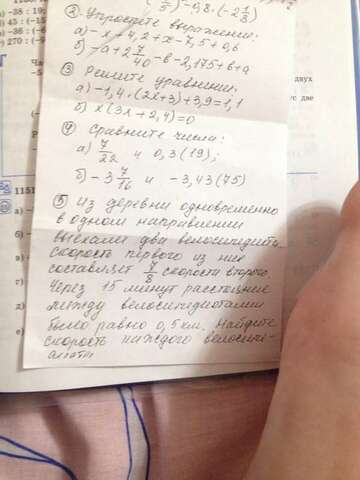 ) -9,8·(-2 1/8)
② Упростите выражения:
а) -x -4,2 +x -7,5 +0,6
б) -а+2 7/40 -в -2,175+в+а
③ Решите уравнения:
а) -1,4·(2x+3)+3,9=1,1
б) x(3x+2,4)=0
④ Сравните числа:
а) 7/22 и 0,3(19);
б) -3 7/16 и -3,43(75)
⑤ Из деревни одновременно
в одном направлении
выехали два велосипедиста.
Скорость первого из них
составляет 7/8 скорости второго.
Через 15 минут расстояние
между велосипедистами
было равно 0,5км. Найдите
скорость каждого велосипе-
двух
две
1151